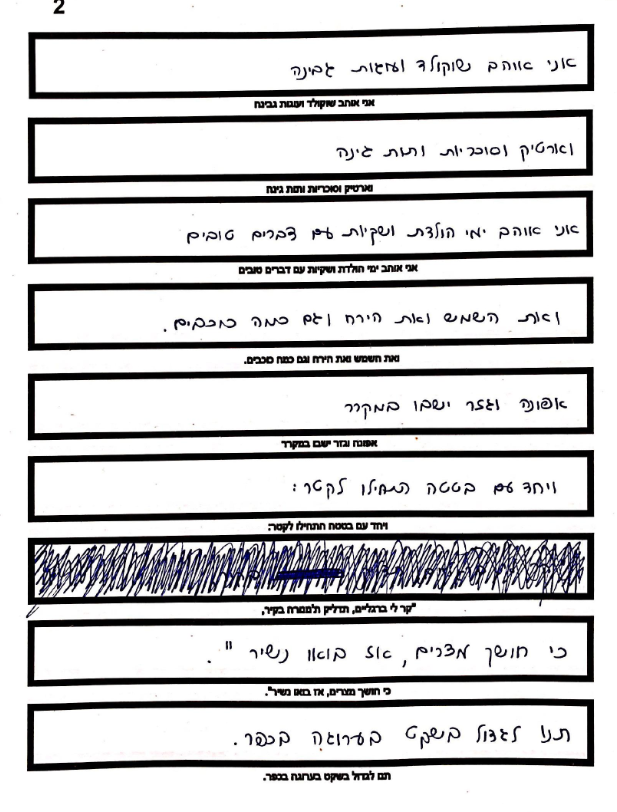 2
אני אוהב שוקולד ועוגות גבינה
אני אוהב שוקולד ועוגות גבינה
וארטיק וסוכריות ותות גינה
וארטיק וסוכריות ותות גינה
אני אוהב ימי הולדת ושקיות עם דברים טובים
אני אוהב ימי הולדת ושקיות עם דברים טובים
ואת השמש ואת הירח וגם כמה כוכבים.
ואת השמש ואת הירח וגם כמה כוכבים.
אפונה וגזר ישבו במקרר
אפונה וגזר ישבו במקרר
ויחד עם בטטה התחילו לקטר:
ויחד עם בטטה התחילו לקטר:
"קר לי ברגליים, תדליק ת'מנורה בקיר,
כי חושך מצרים, אז בואו נשיר".
כי חושך מצרים, אז בואו נשיר".
תנו לגדול בשקט בערוגה בכפר.
תנו לגדול בשקט בערוגה בכפר.